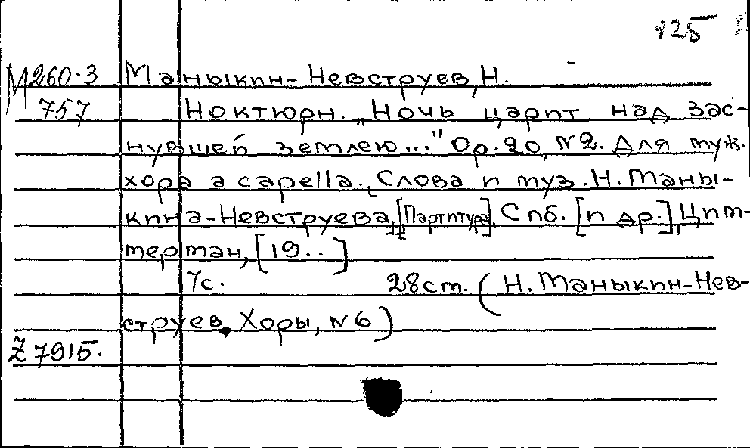 125
М260-3 Маныкин-Невструев, Н.
757 Ноктюрн. „Ночь царит над зас-
нувшей землею..." Op. 20, №2. Для муж.
хора a capella. Слова и муз. Н. Маны-
кина-Невструева. [Партитура]. Спб. [и др.], Цим-
мерман, [19..]
7с. 28 см. (Н. Маныкин-Нев-
струев. Хоры, №6)
Z 7915.